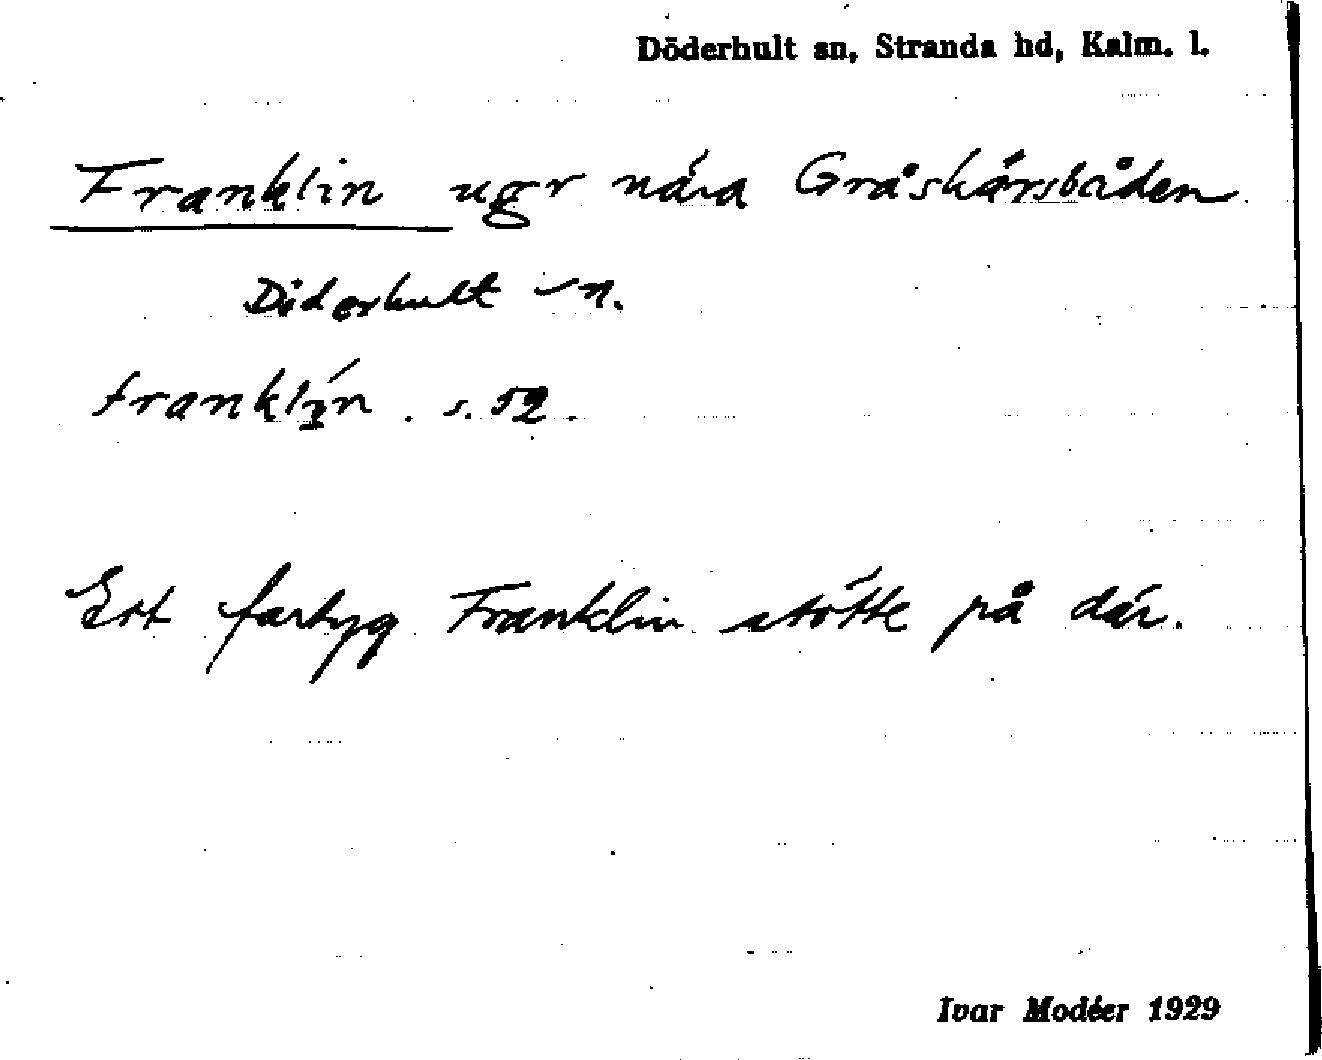 Döderhult sn, Stranda hd, Kalm. l.
Franklin ugr nära Gråskärsbåden
Döderhult sn.
franklín. s. 52.
Ett fartyg Franklin stötte på där.
Ivar Modéer 1929